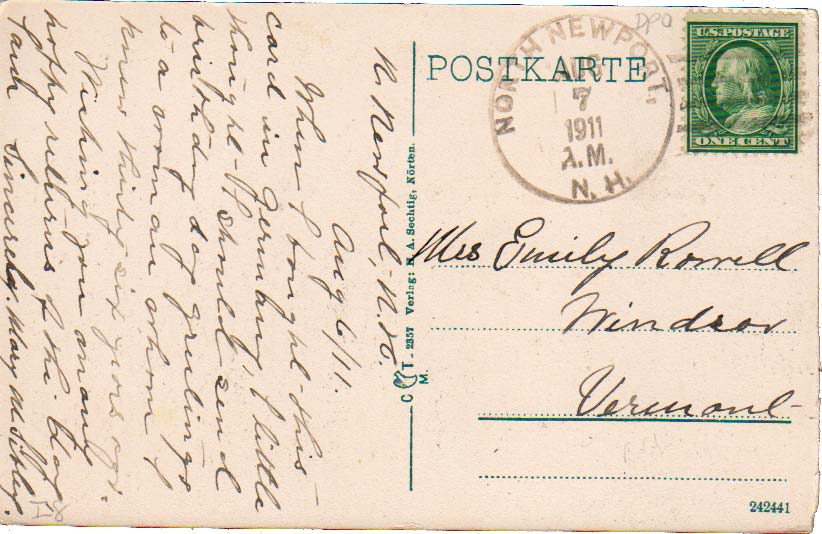 N. Newport, N.H.
Aug 6/11.
When I bought this
card in Germany, I little
thought I should send
birthday day greetings
to a woman whom I
knew thirty six years ago.
Wishing you many
happy returns of the day
I am Sincerely, Mary M. Sibley.
POSTKARTE
NORTH NEWPORT,
AUG
7
1911
A.M.
N. H.
DPO
U.S. POSTAGE
ONE CENT
Mrs Emily Rowell
Windsor
Vermont
C T. M. 2357 Verlag: H. A. Sechtig, Nörten.
242441